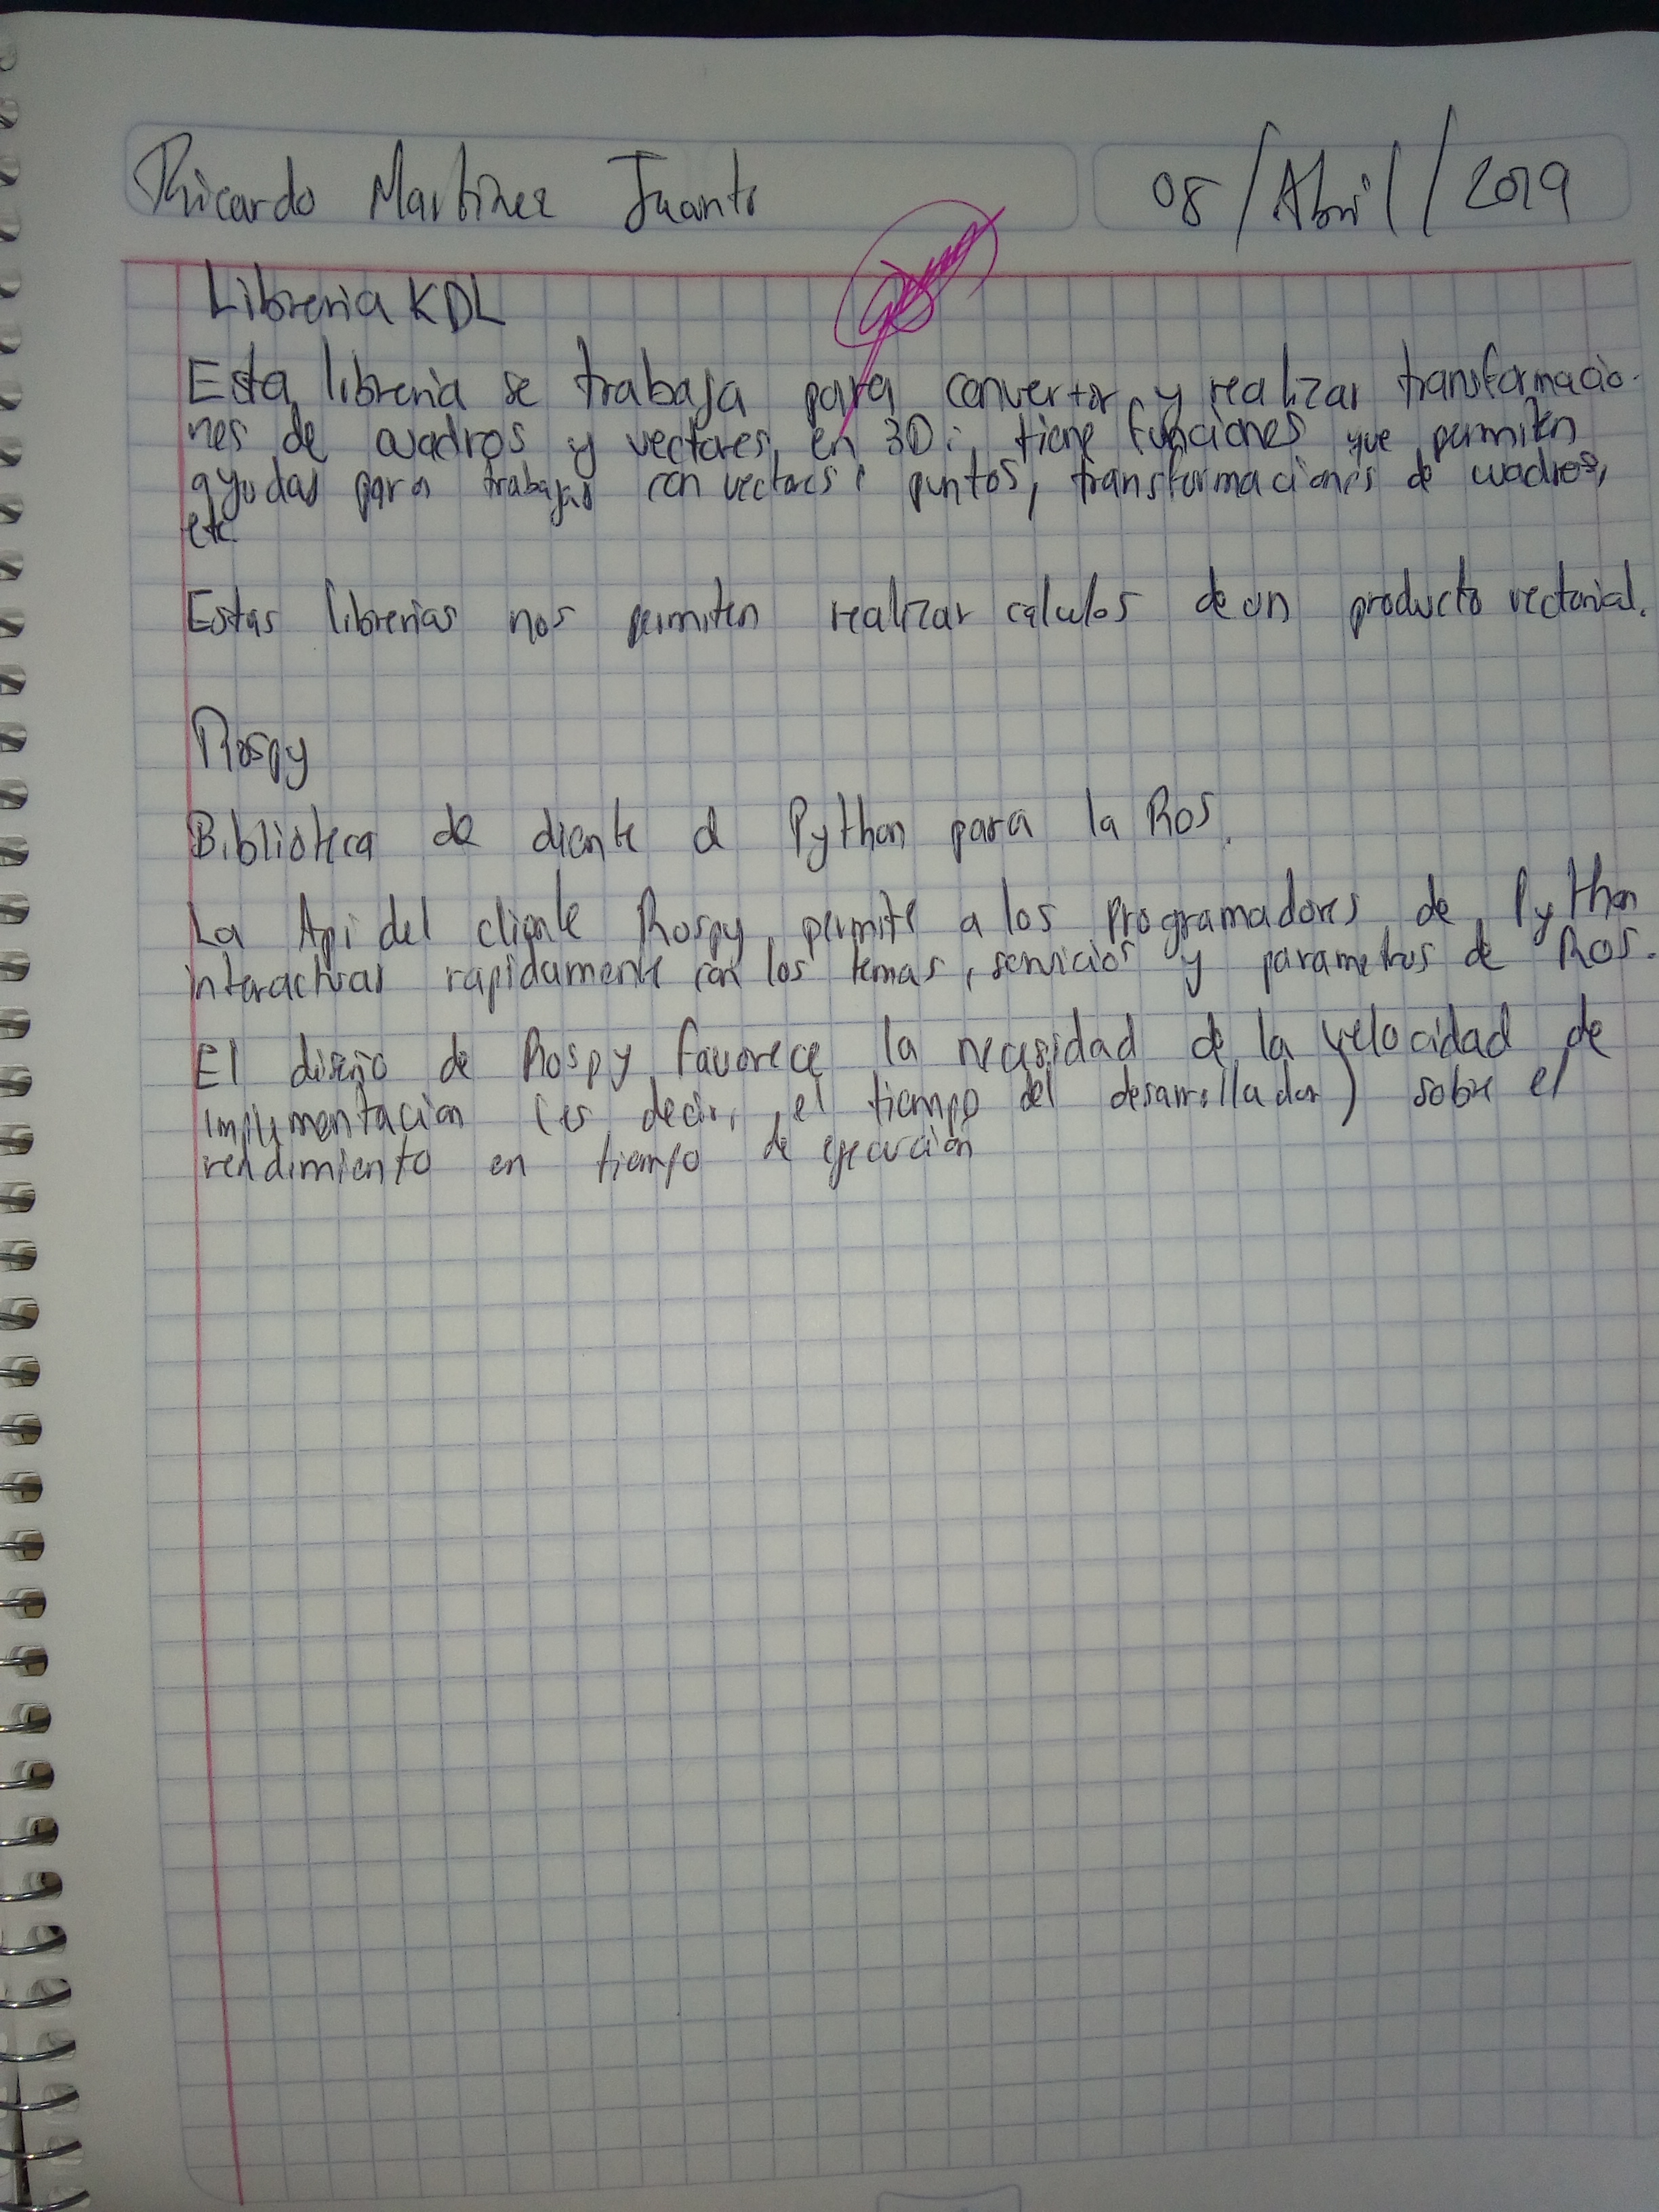 Ricardo Martinez Juanto 08/Abril/2019
Libreria KDL
Esta libreria se trabaja para convertir y realizar transformacio-
nes de cuadros y vectores en 3D; tiene funciones que permiten
ayudas para trabajar con vectores, puntos, transformaciones de cuadros,
etc.
Estas librerias nos permiten realizar calculos de un producto vectorial.
Rospy
Biblioteca de cliente d Python para la Ros.
La Api del cliente Rospy, permite a los programadores de Python
interactuar rapidamente con los temas, servicios y parametros de Ros.
El diseño de Rospy favorece la necesidad de la velocidad de
implementacion (es decir, el tiempo del desarrollador) sobre el
rendimiento en tiempo de ejecución